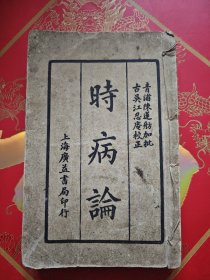 青浦陳蓮舫加批
古吳江忍庵校正
時病論
上海廣益書局印行